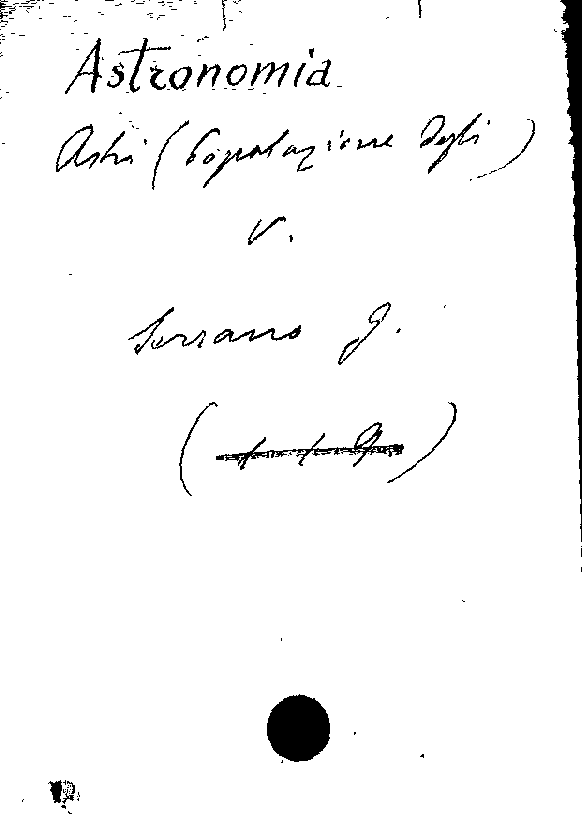 Astronomia
Astri (Popolazione degli)
V.
Serrano G.